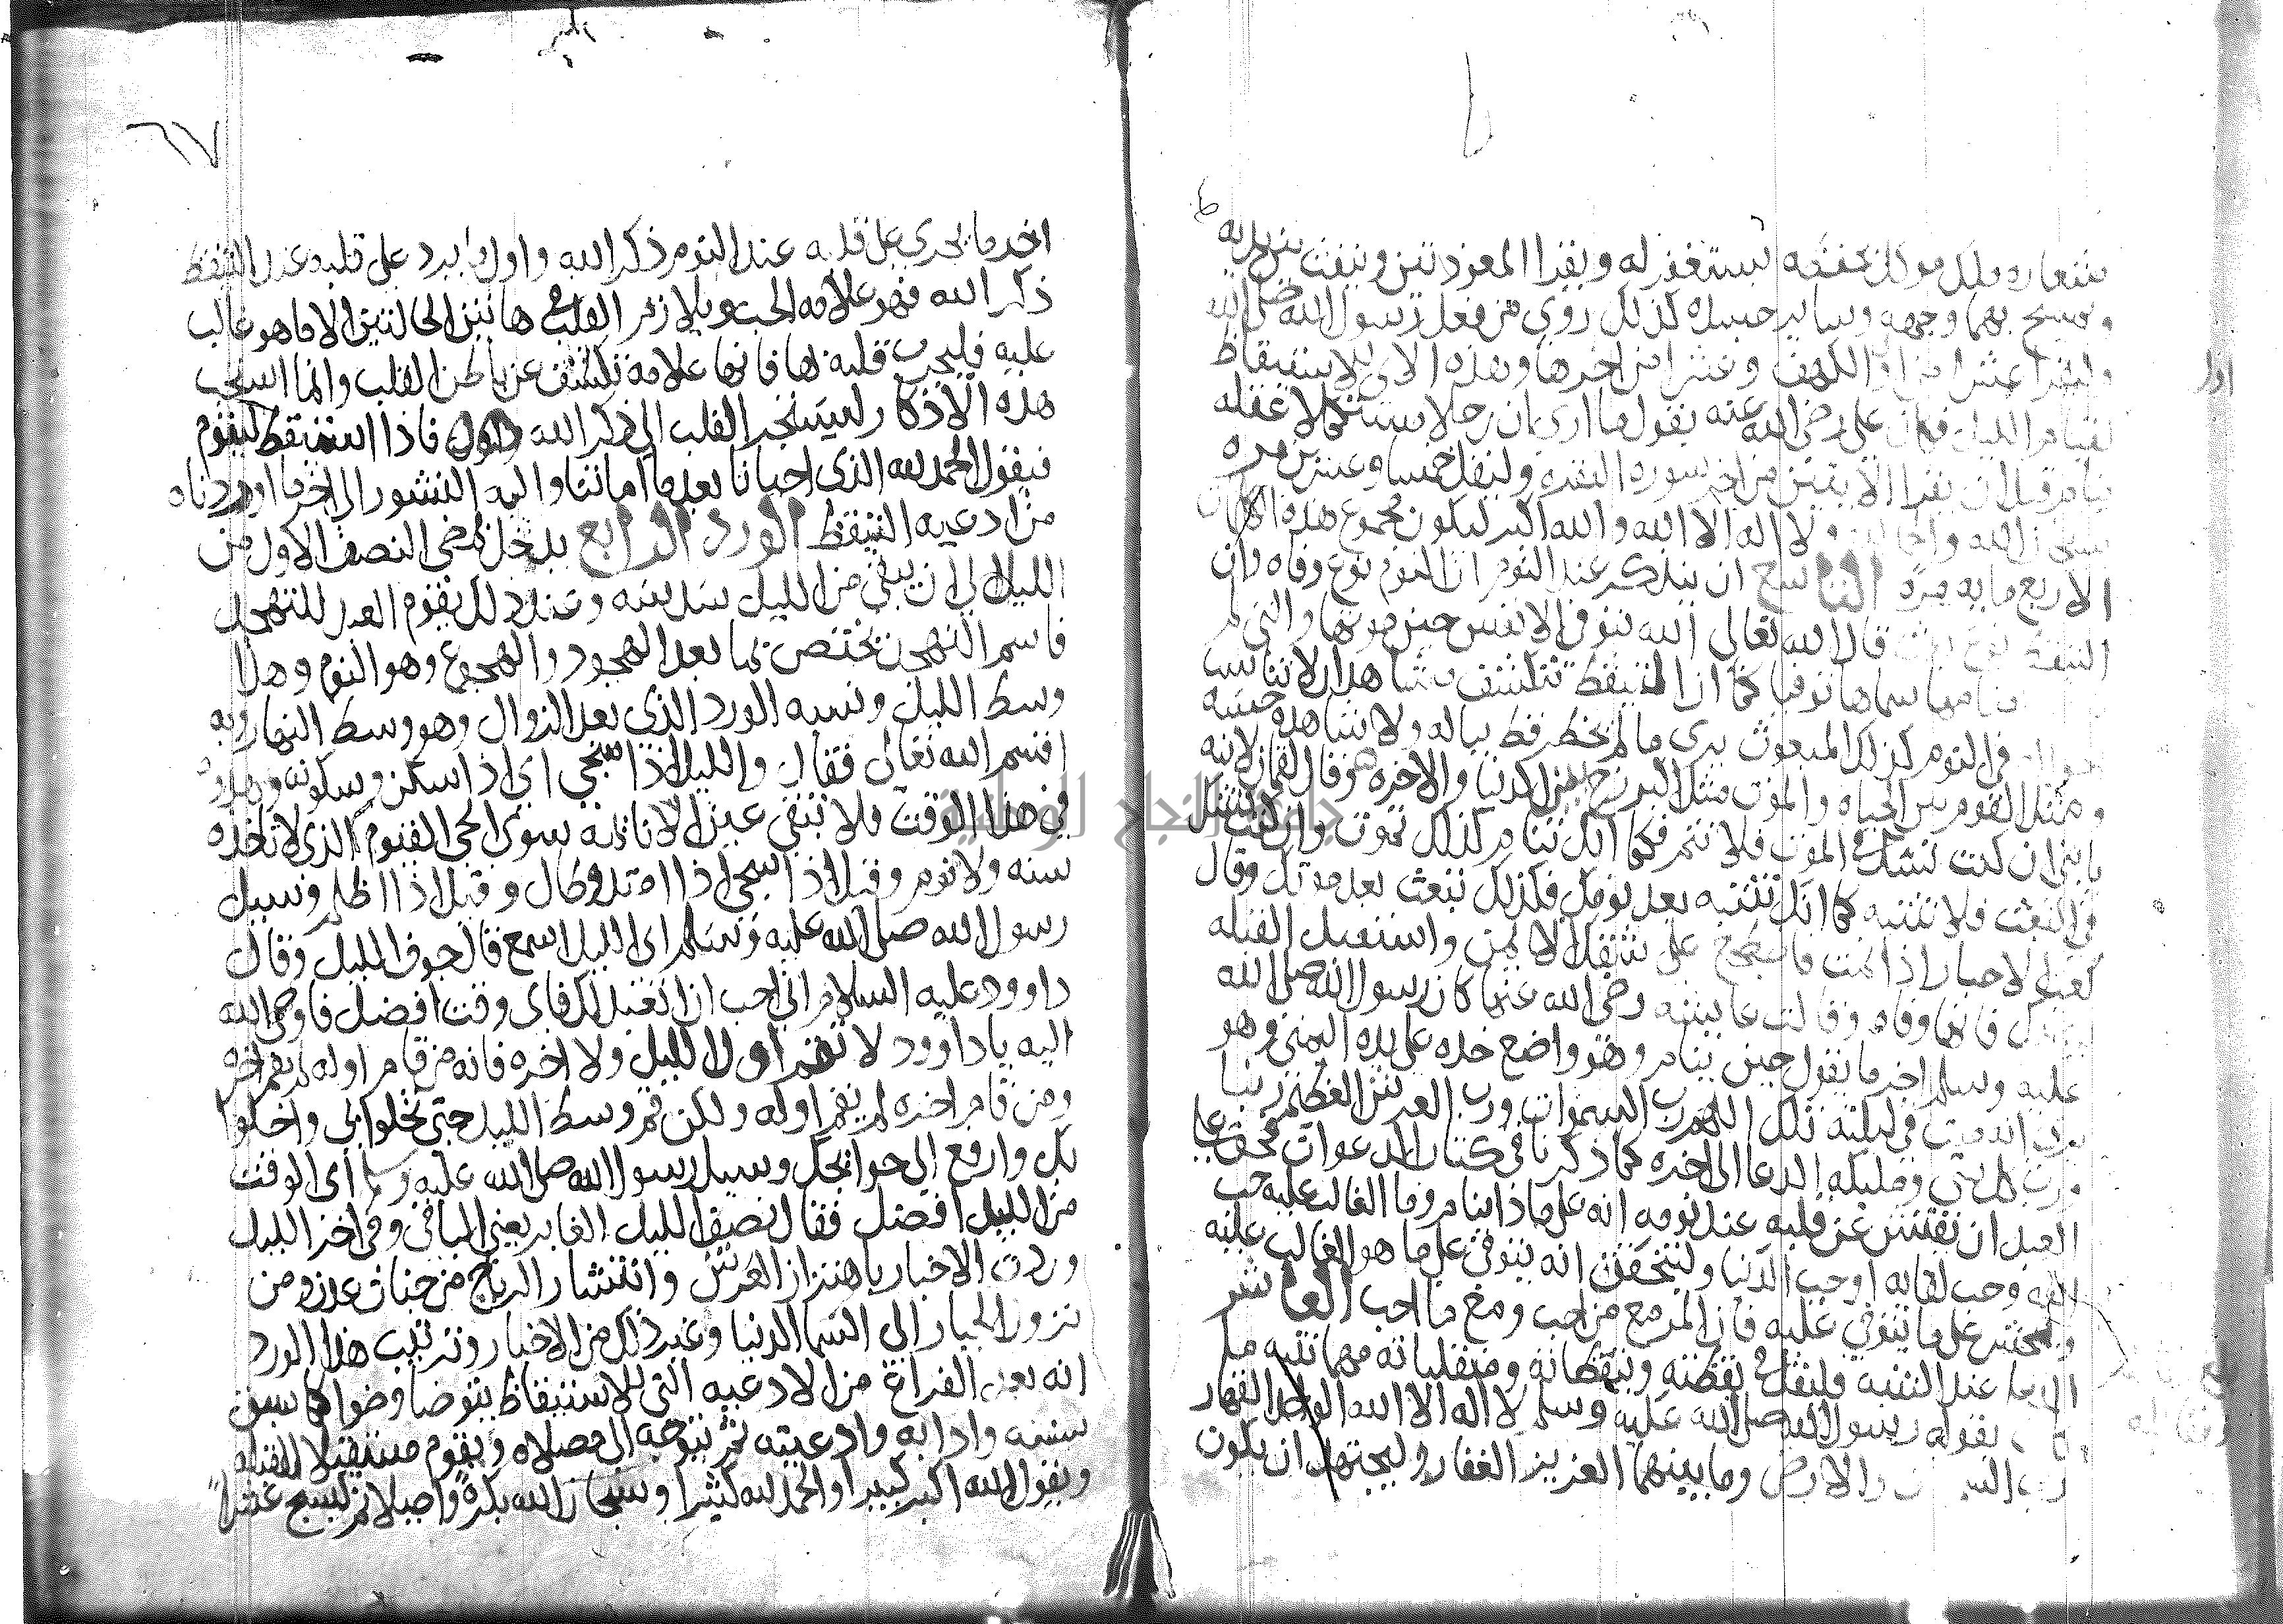 شعاره ملك موكل بحفظه يستغفر له ويقرا المعوذتين وينفث بهن في يديه
ويمسح بهما وجهه وساير جسده كذلك روي من فعل رسول الله صلى الله
وليقرا عشرا من اول الكهف وعشرا من اخرها وهذه الاي للاستيقاظ
لقيام الليل وكان على رضي الله عنه يقول ما ارى ان رجلا مستكملا عقله
ينام قبل ان يقرا الايتين من اخر سورة البقره وليقل خمسا وعشرين مره
سبحان الله والحمد لله ولا اله الا الله والله اكبر ليكون مجموع هذه الكلمات
الاربع مايه مره التاسع ان يتذكر عند النوم ان النوم نوع وفاه وان
التيقظ نوع بعث قال الله تعالى الله يتوفى الانفس حين موتها والتي لم
منامها سماها توفيا كما ان المتيقظ تنكشف مشاهدات لا تناسب
في النوم كذلك المبعوث يرى ما لم يخطر قط بباله ولا شاهده حسه
ومثل النوم بين الحياه والموت مثل البرزخ بين الدنيا والاخره وقال لقمان لابنه
يا بني ان كنت تشك في الموت فلا تنم فكما انك تنام كذلك تموت وان كنت تشك
في البعث فلا تنتبه كما انك تنتبه بعد نومك فكذلك تبعث بعد موتك وقال
كعب الاحبار اذا نمت فاضطجع على شقك الايمن واستقبل القبله
فانها وفاه وقالت عايشه رضي الله عنها كان رسول الله صلى الله
عليه وسلم اخر ما يقول حين ينام وهو واضع خده على يده اليمنى وهو
يرى انه ميت في ليلته تلك اللهم رب السموات ورب العرش العظيم ربنا
ورب كل شي ومليكه الدعا الى اخره كما ذكرنا في كتاب الدعوات فحق على
العبد ان يفتش عن قلبه عند نومه انه على ماذا ينام وما الغالب عليه حب
الله وحب لقايه او حب الدنيا وليتحقق انه يتوفى على ما هو الغالب عليه
ويحشر على ما يتوفى عليه فان المر مع من احب ومع ما احب العاشر
الدعا عند التنبه فليقل في يقظته وتيقظاته وتقلباته مهما تنبه ما
يقوله رسول الله صلى الله عليه وسلم لا اله الا الله الواحد القهار
رب السموات والارض وما بينهما العزيز الغفار وليجتهد ان يكون
٦٧
اخر ما يجري على قلبه عند النوم ذكر الله واول ما يرد على قلبه عند التيقظ
ذكر الله فهو علامه الحب ولا يلازم القلب في هاتين الحالتين الا ما هو غالب
عليه فليجرب قلبه بها فانها علامة تكشف عن باطن القلب وانما استحب
هذه الاذكار ليستجر القلب الى ذكر الله فاذا استيقظ ليقوم
فيقول الحمد لله الذي احيانا بعد ما اماتنا واليه النشور الى اخر ما اوردناه
من ادعيه التيقظ الورد الرابع يدخل بمضي النصف الاول من
الليل الى ان يبقى من الليل سدسه وعند ذلك يقوم العبد للتهجد
فاسم التهجد يختص بما بعد الهجود والهجوع وهو النوم وهذا
وسط الليل ويشبه الورد الذي بعد الزوال وهو وسط النهار وبه
اقسم الله تعالى فقال والليل اذا سجى اي اذا سكن وسكونه وهدوه
في هذا الوقت فلا تبقى عين الا نايمه سوى الحي القيوم الذي لا تاخذه
سنه ولا نوم وقيل اذا سجى اذا امتد وطال وقيل اذا اظلم وسيل
رسول الله صلى الله عليه وسلم اي الليل اسمع قال جوف الليل وقال
داوود عليه السلام اني احب ان اتعبد لك فاي وقت افضل فاوحى الله
اليه يا داوود لا تقم اول الليل ولا اخره فانه من قام اوله لم يقم اخره
ومن قام اخره لم يقم اوله ولكن قم وسط الليل حتى تخلوا بي واخلوا
بك وارفع الي حوايجك وسيل رسول الله صلى الله عليه وسلم اي الوقت
من الليل افضل فقال نصف الليل الغابر يعني الباقي وفي اخر الليل
وردت الاخبار باهتزاز العرش وانتشار الرياح من جنات عدن ومن
نزول الجبار الى السما الدنيا وغير ذلك من الاخبار وترتيب هذا الورد
انه بعد الفراغ من الادعيه التي للاستيقاظ يتوضا وضوا كما سبق
بسننه وادابه وادعيته ثم يتوجه الى مصلاه ويقوم مستقبلا للقبله
ويقول الله اكبر كبيرا والحمد لله كثيرا وسبحان الله بكرة واصيلا ثم ليسبح عشرا